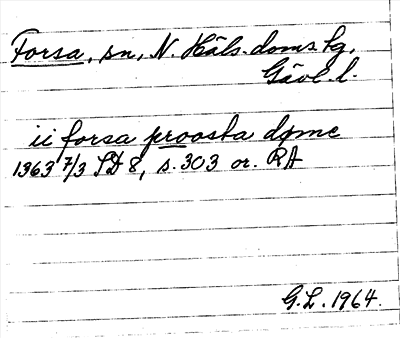 Forsa, sn, N. Häls. doms. fg,
Gävl. l.
ii forsa proosta døme
1363 7/3 SD 8, s. 303 or. RA
G.L. 1964.